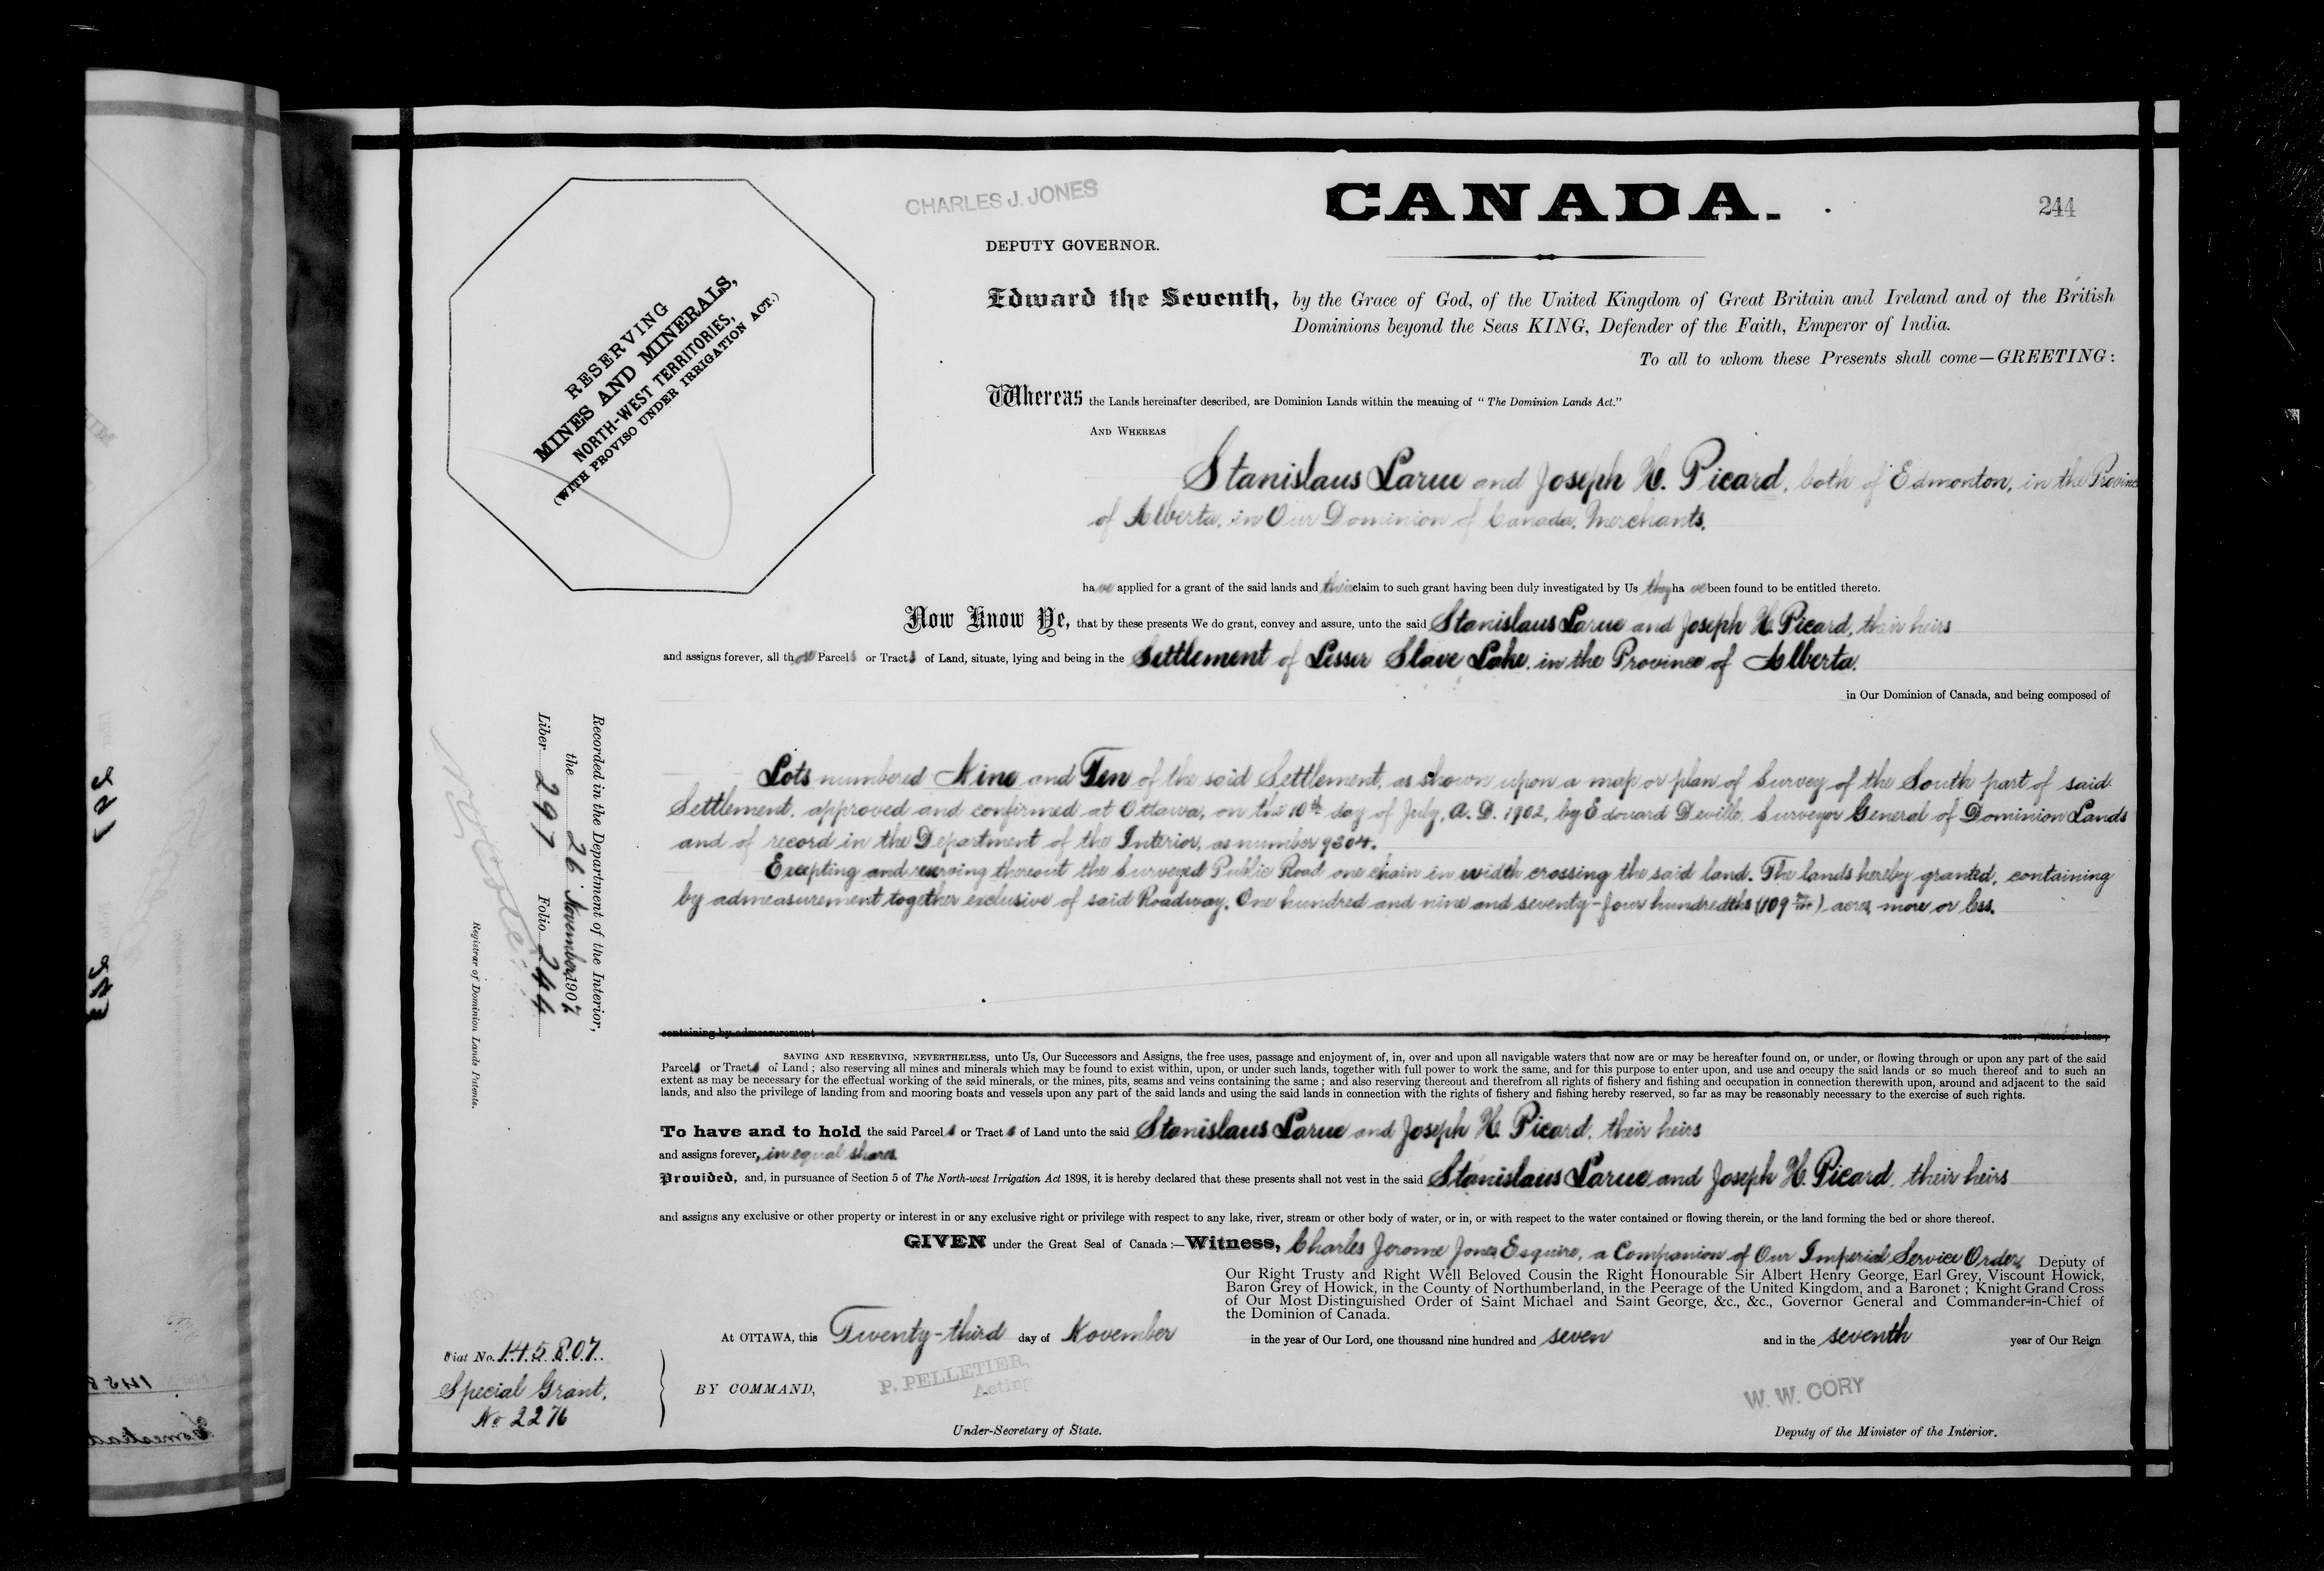 CHARLES J. JONES
CANADA.
244
DEPUTY GOVERNOR.
RESERVING
MINES AND MINERALS,
NORTH-WEST TERRITORIES,
(WITH PROVISO UNDER IRRIGATION ACT.)
Edward the Seventh, by the Grace of God, of the United Kingdom of Great Britain and Ireland and of the British
Dominions beyond the Seas KING, Defender of the Faith, Emperor of India.
To all to whom these Presents shall come—GREETING:
Whereas the Lands hereinafter described, are Dominion Lands within the meaning of "The Dominion Lands Act."
AND WHEREAS
Stanislaus Larue and Joseph H. Picard, both of Edmonton, in the Province
of Alberta, in Our Dominion of Canada, Merchants,
have applied for a grant of the said lands and their claim to such grant having been duly investigated by Us they have been found to be entitled thereto.
Now Know Ye, that by these presents We do grant, convey and assure, unto the said Stanislaus Larue and Joseph H. Picard, their heirs
and assigns forever, all those Parcels or Tracts of Land, situate, lying and being in the Settlement of Lesser Slave Lake, in the Province of Alberta,
in Our Dominion of Canada, and being composed of
Lots numbered Nine and Ten of the said Settlement, as shown upon a map or plan of Survey of the South part of said
Settlement, approved and confirmed at Ottawa, on the 10th day of July, A. D. 1902, by Edouard Deville, Surveyor General of Dominion Lands
and of record in the Department of the Interior, as number 9304.
Excepting and reserving thereout the Surveyed Public Road one chain in width crossing the said land. The lands hereby granted, containing
by admeasurement together exclusive of said Roadway, One hundred and nine and seventy-four hundredths (109 74/100) acres, more or less.
containing by admeasurement acre , more or less;
SAVING AND RESERVING, NEVERTHELESS, unto Us, Our Successors and Assigns, the free uses, passage and enjoyment of, in, over and upon all navigable waters that now are or may be hereafter found on, or under, or flowing through or upon any part of the said
Parcels or Tracts of Land; also reserving all mines and minerals which may be found to exist within, upon, or under such lands, together with full power to work the same, and for this purpose to enter upon, and use and occupy the said lands or so much thereof and to such an
extent as may be necessary for the effectual working of the said minerals, or the mines, pits, seams and veins containing the same; and also reserving thereout and therefrom all rights of fishery and fishing and occupation in connection therewith upon, around and adjacent to the said
lands, and also the privilege of landing from and mooring boats and vessels upon any part of the said lands and using the said lands in connection with the rights of fishery and fishing hereby reserved, so far as may be reasonably necessary to the exercise of such rights.
To have and to hold the said Parcels or Tracts of Land unto the said Stanislaus Larue and Joseph H. Picard, their heirs
and assigns forever, in equal shares.
Provided, and, in pursuance of Section 5 of The North-west Irrigation Act 1898, it is hereby declared that these presents shall not vest in the said Stanislaus Larue and Joseph H. Picard, their heirs
and assigns any exclusive or other property or interest in or any exclusive right or privilege with respect to any lake, river, stream or other body of water, or in, or with respect to the water contained or flowing therein, or the land forming the bed or shore thereof.
GIVEN under the Great Seal of Canada:—Witness, Charles Jerome Jones Esquire, a Companion of Our Imperial Service Order, Deputy of
Our Right Trusty and Right Well Beloved Cousin the Right Honourable Sir Albert Henry George, Earl Grey, Viscount Howick,
Baron Grey of Howick, in the County of Northumberland, in the Peerage of the United Kingdom, and a Baronet; Knight Grand Cross
of Our Most Distinguished Order of Saint Michael and Saint George, &c., &c., Governor General and Commander-in-Chief of
the Dominion of Canada.
At OTTAWA, this Twenty-third day of November in the year of Our Lord, one thousand nine hundred and seven and in the seventh year of Our Reign
BY COMMAND,
P. PELLETIER,
Acting
Under-Secretary of State.
W. W. CORY
Deputy of the Minister of the Interior.
Recorded in the Department of the Interior,
the 26 November 1907
Liber 297 Folio 244
Registrar of Dominion Lands Patents.
Fiat No. 145807.
Special Grant.
No 2276